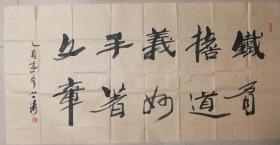 鐵肩
擔道
義妙
手著
文章
乙酉